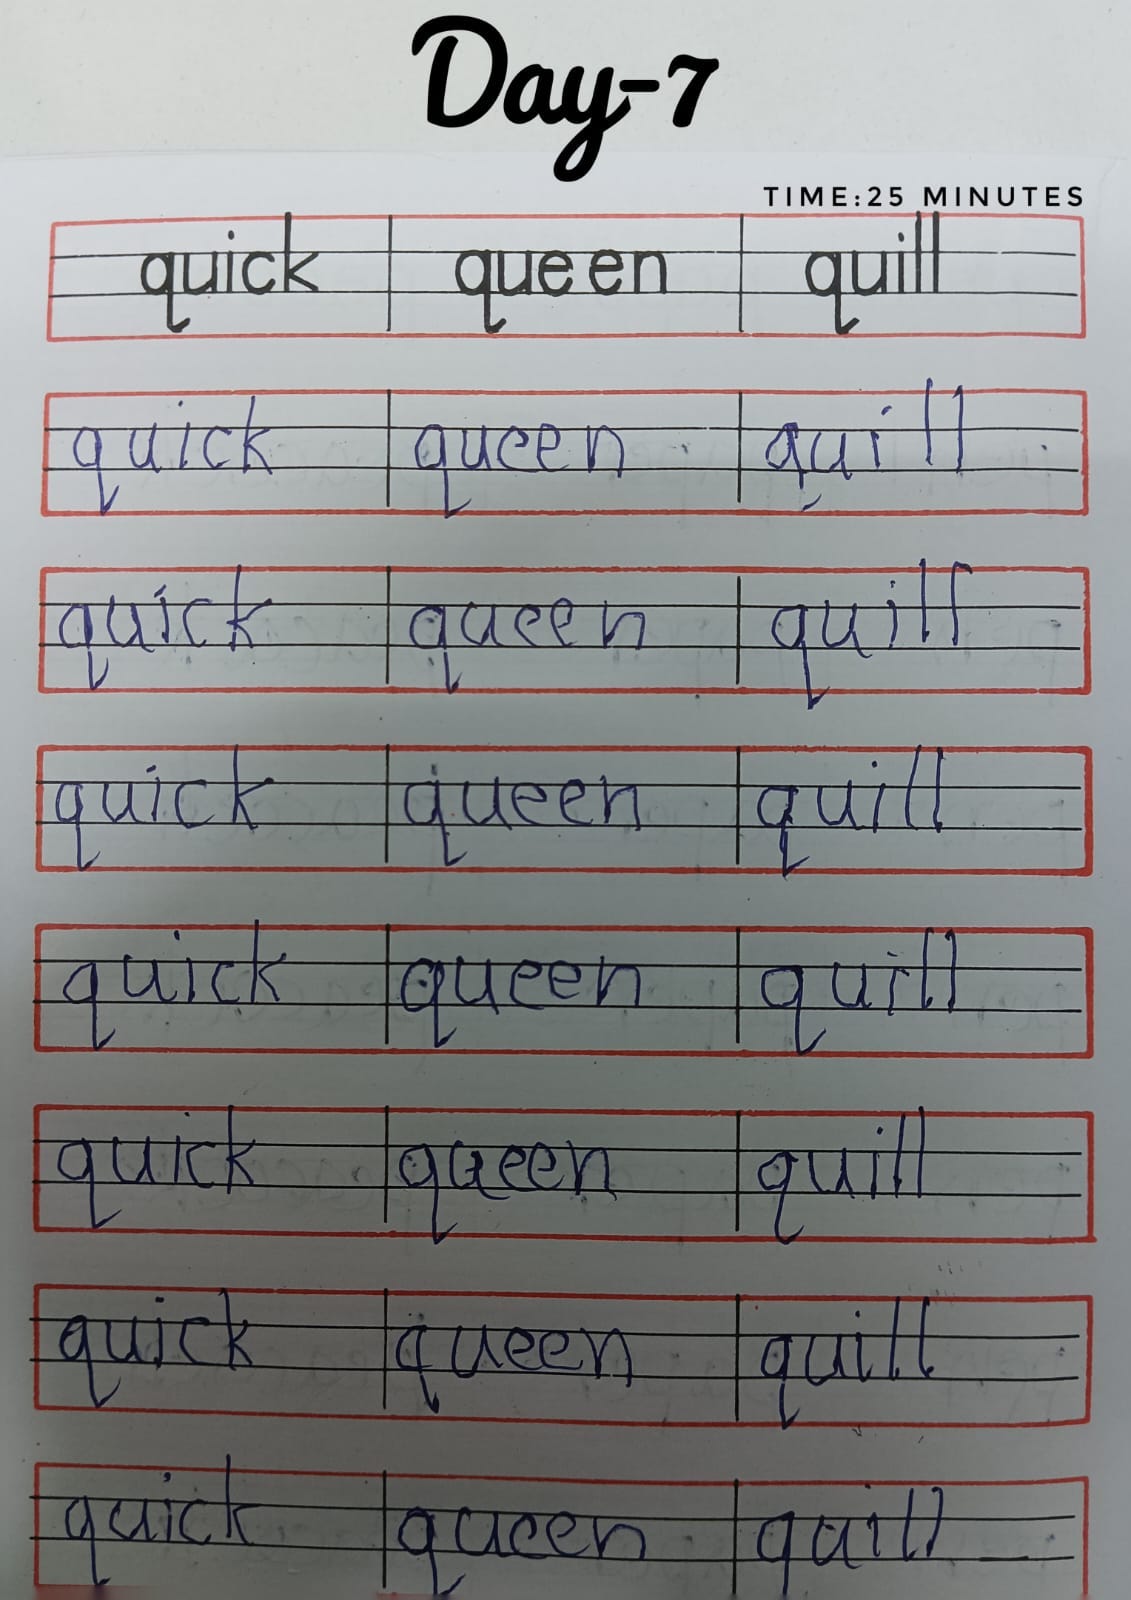 Day-7
TIME:25 MINUTES
quick queen quill
quick queen quill
quick queen quill
quick queen quill
quick queen quill
quick queen quill
quick queen quill
quick queen quill